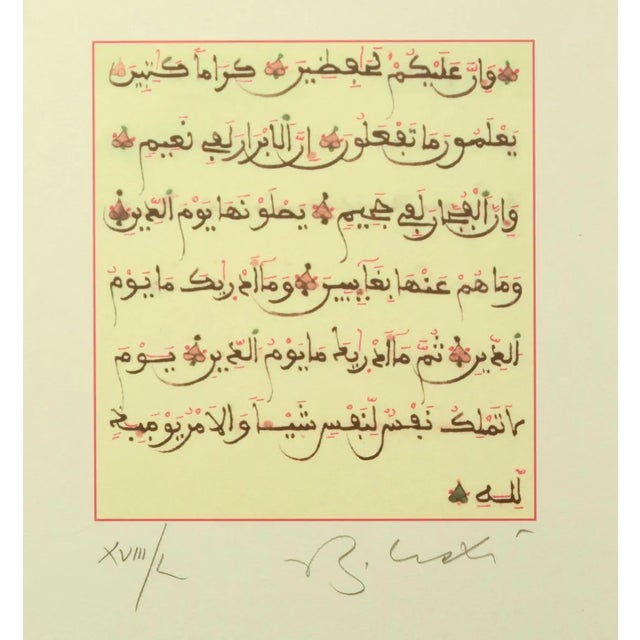 وَإِنَّ عَلَيْكُمْ لَحَٰفِظِينَ كِرَاماً كَٰتِبِينَ
يَعْلَمُونَ مَا تَفْعَلُونَ إِنَّ ٱلَابْرَارَ لَفِے نَعِيمٍ
وَإِنَّ ٱلْفُجَّارَ لَفِے جَحِيمٍ يَصْلَوْنَهَا يَوْمَ ٱلدِّينِ
وَمَا هُمْ عَنْهَا بِغَآئِبِينَ وَمَآ أَدْر۪يٰكَ مَا يَوْمُ
ٱلدِّينِ ثُمَّ مَآ أَدْر۪يٰكَ مَا يَوْمُ ٱلدِّينِ يَوْمَ
لَا تَمْلِكُ نَفْسٌ لِّنَفْسٍ شَيْـٔاً وَالَامْرُ يَوْمَئِذٍ
لِّلهِ
XVIII/L